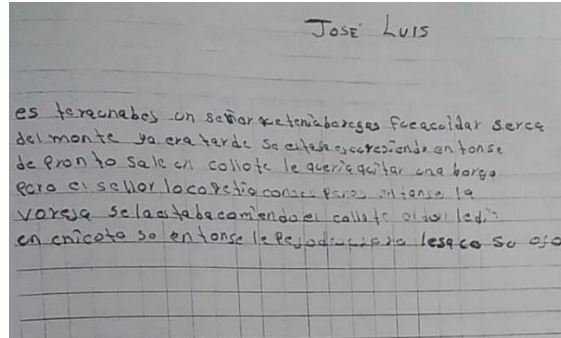 JOSÉ LUIS
es teraunabes un señor qeteniaboregas fueacuidar serca
del monte ya era tarde se estaba escuresiendo entonse
de pronto sale un collote le queria quitar una borga
pero el sellor locoretio con sus peros entonse la
voreja selaestabacomiendo el collote
en enicoto so entonse le lesaco su ojo